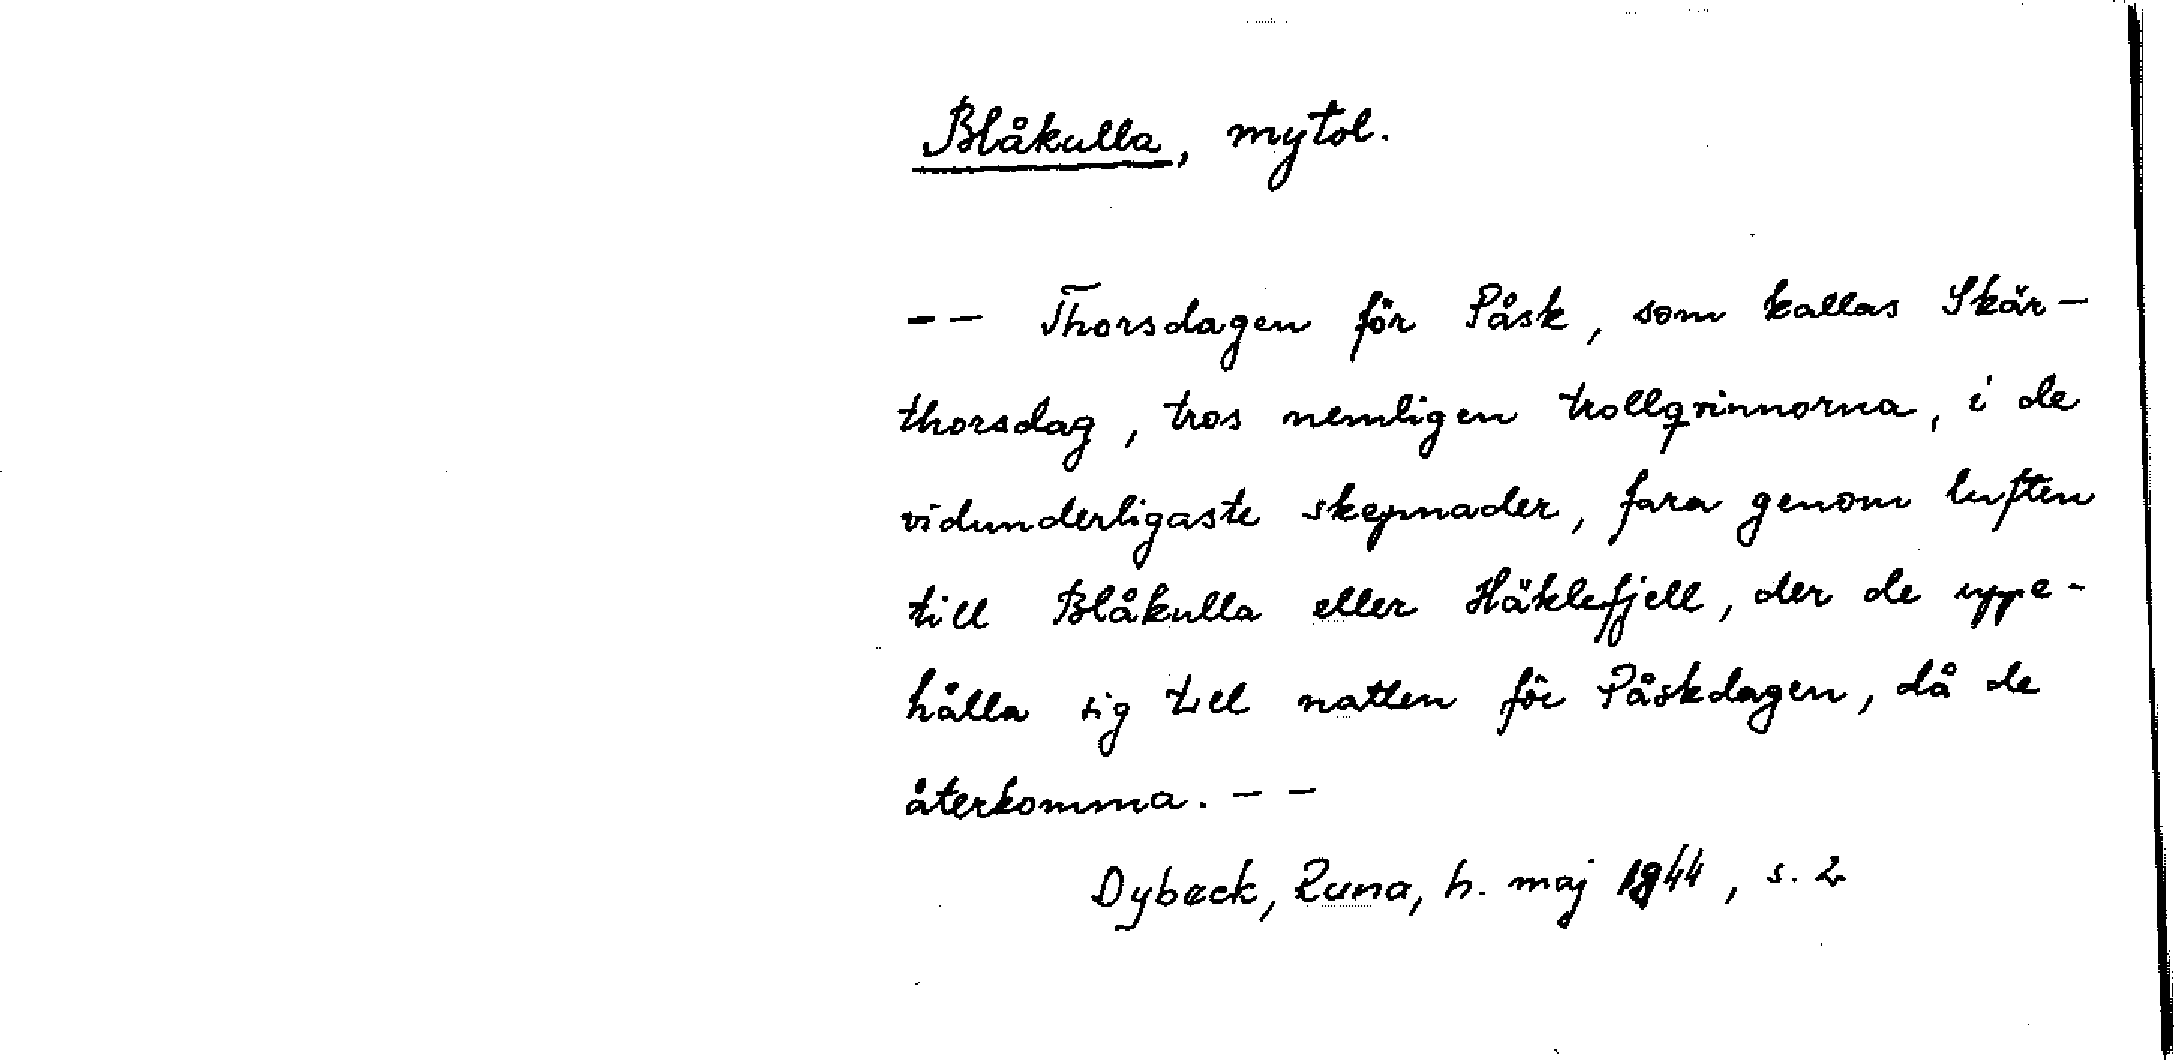 Blåkulla, mytol.
-- Thorsdagen för Påsk, som kallas Skär-
thorsdag, tros nemligen trollqvinnorna, i de
vidunderligaste skepnader, fara genom luften
till Blåkulla eller Häklefjell, der de uppe-
hålla sig till natten för Påskdagen, då de
återkomma. --
Dybeck, Runa, h. maj 1944, s. 2